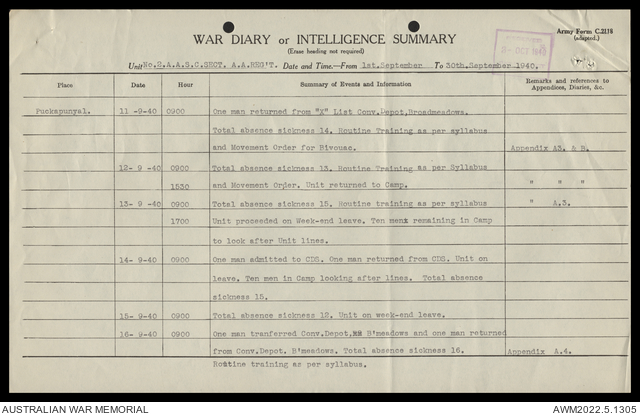 WAR DIARY or INTELLIGENCE SUMMARY
(Erase heading not required)
Army Form C.2118
(adapted.)
OCT 1940
Unit No.2.A.A.S.C.SECT. A.A.REG'T. Date and Time.—From 1st.September To 30th.September 1940.
Place Date Hour Summary of Events and Information Remarks and references to Appendices, Diaries, &c.
Puckapunyal. 11 -9-40 0900 One man returned from "X" List Conv.Depot,Broadmeadows.
Total absence sickness 14. Routine Training as per syllabus
and Movement Order for Bivouac. Appendix A3. & B.
12- 9 -40 0900 Total absence sickness 13. Routine Training as per Syllabus
1530 and Movement Order. Unit returned to Camp. " " "
13- 9 -40 0900 Total absence sickness 15. Routine training as per syllabus " A.3.
1700 Unit proceeded on Week-end leave. Ten menx remaining in Camp
to look after Unit lines.
14- 9-40 0900 One man admitted to CDS. One man returned from CDS. Unit on
leave. Ten men in Camp looking after lines. Total absence
sickness 15.
15- 9-40 0900 Total absence sickness 12. Unit on week-end leave.
16- 9-40 0900 One man tranferred Conv.Depot, B'meadows and one man returned
from Conv.Depot. B'meadows. Total absence sickness 16. Appendix A.4.
Routine training as per syllabus.
AUSTRALIAN WAR MEMORIAL
AWM2022.5.1305